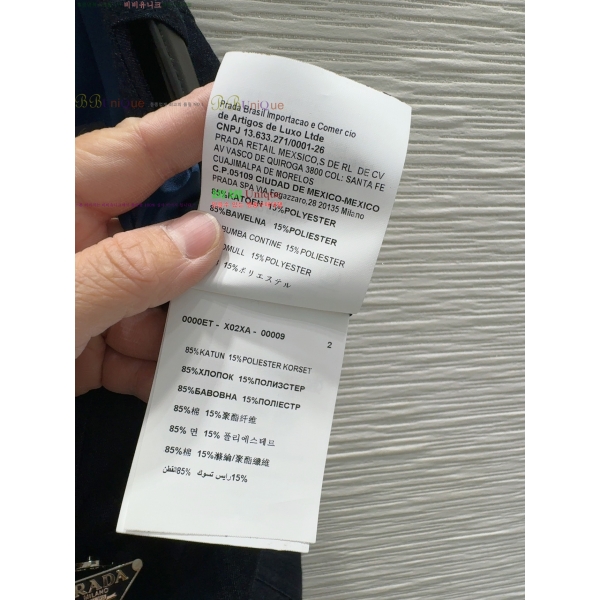 비비유니크
BBuniQue
BBUniQue
Prada Brasil Importacao e Comer cio
de Artigos de Luxo Ltde
CNPJ 13.633.271/0001-26
PRADA RETAIL MEXSICO,S DE RL DE CV
AV VASCO DE QUIROGA 3800 COL: SANTA FE
CUAJIMALPA DE MORELOS
C.P.05109 CIUDAD DE MEXICO-MEXICO
PRADA SPA VIA Fogazzaro,28 20135 Milano
KATOEN 15%POLYESTER
85%BAWELNA 15%POLIESTER
BUMBA CONTINE 15%POLIESTER
15%POLYESTER
15%ポリエステル
0000ET - X02XA - 00009
2
85%KATUN 15%POLIESTER KORSET
85%ХЛОПОК 15%ПОЛИЗСТЕР
85%БАВОВНА 15%ПОЛІЕСТР
85%棉 15%聚酯纤维
85% 면 15% 폴리에스테르
85%棉 15%滌綸/聚酯纖維
85%لقطن 15%رايس تسوك
PRADA
MILANO